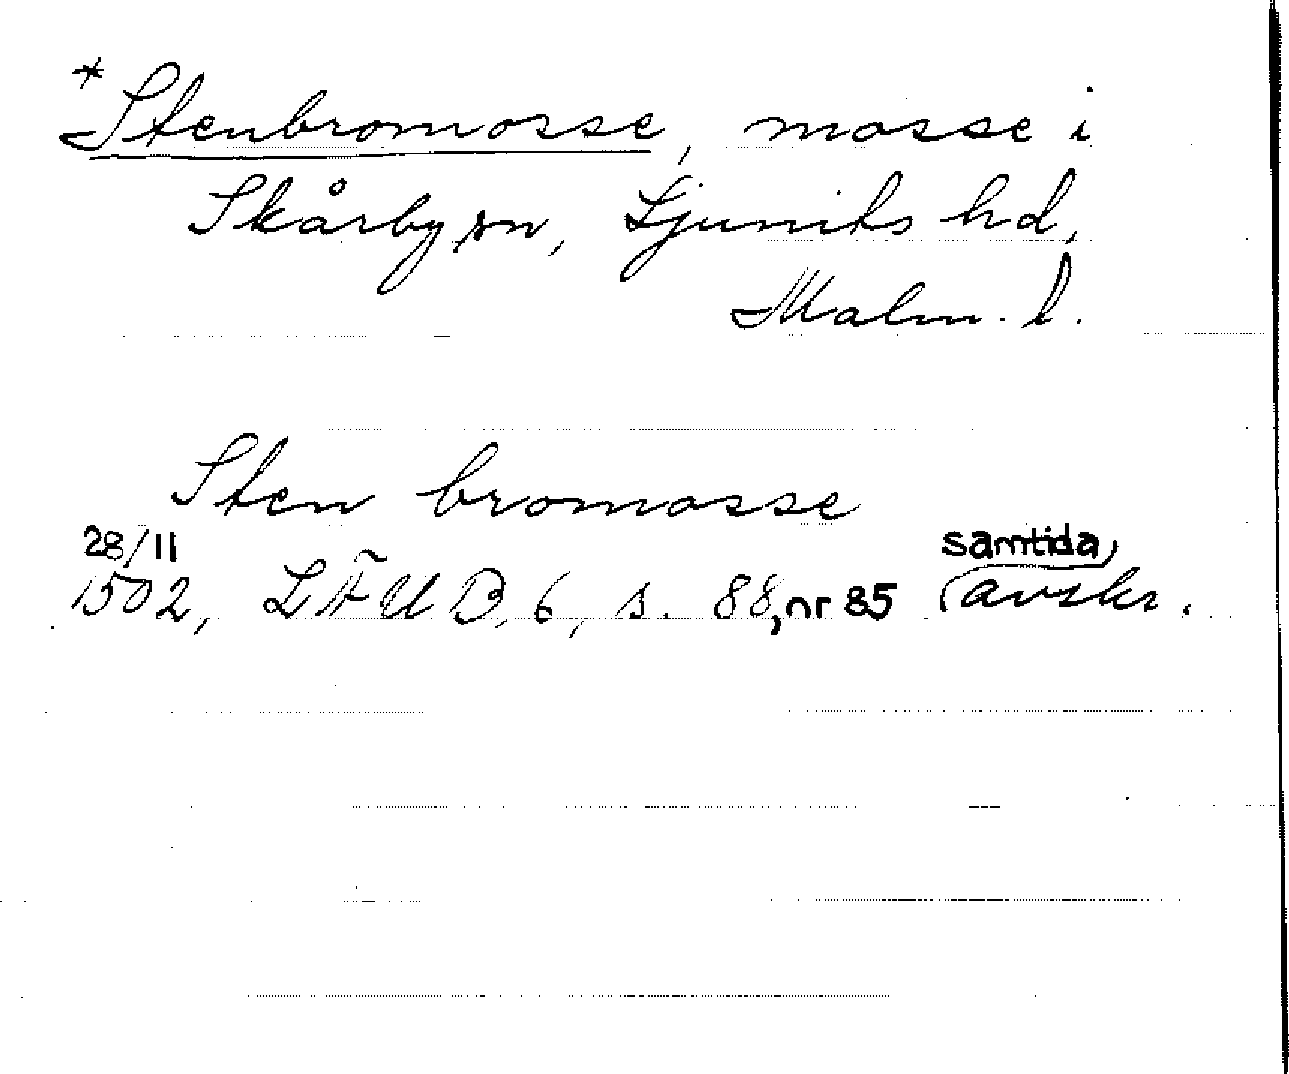 *Stenbromosse, mosse i
Skårby sn, Ljunits hd,
Malm. l.
Sten bromosse
28/11 samtida,
1502, LÄUB, 6, s. 88, nr 85 (avskr.